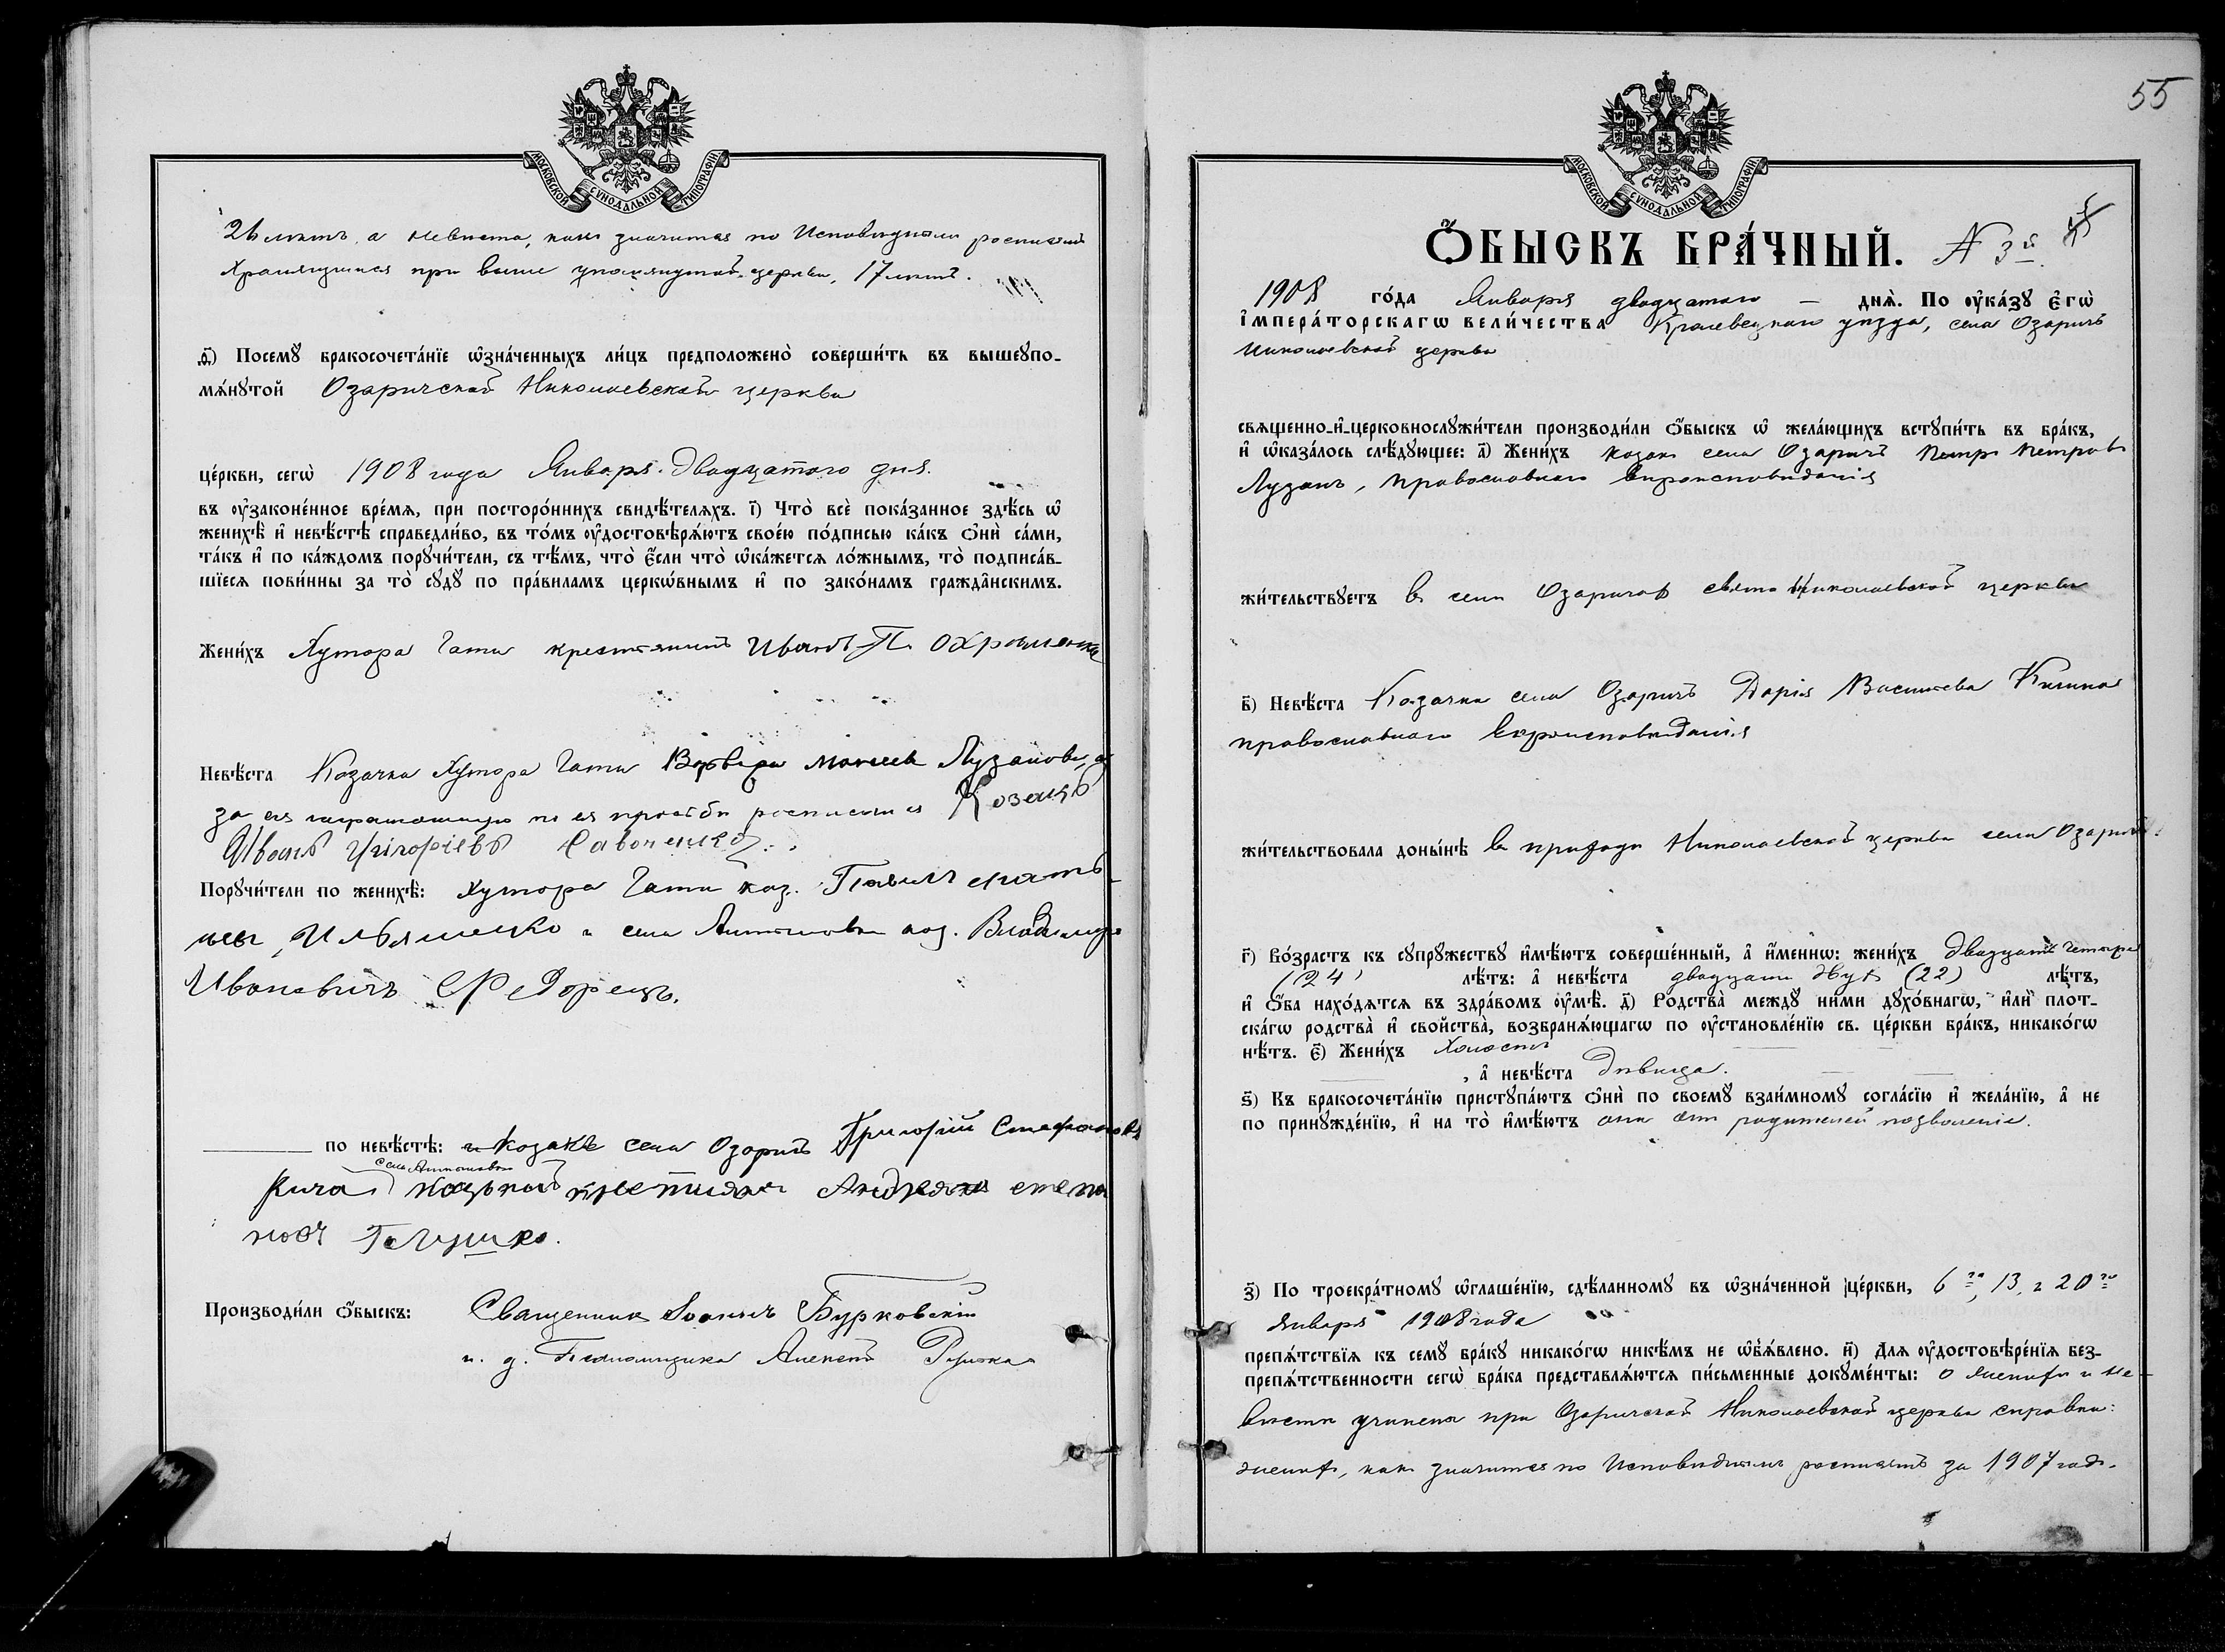 МОСКОВСКОЙ СѴНОДАЛЬНОЙ ТИПОГРАФІИ.
26 лѣтъ, а невѣста, какъ значится по Исповѣднымъ росписямъ
хранящимся при выше упомянутой церкви, 17 лѣтъ.
ѳ҃) Посемꙋ бракосочета́нїе ѡ҆зна́ченныхъ ли́цъ предположено̀ соверши́ть въ вышеꙋпо-
мѧ́нꙋтой Озаричской Николаевской церкви
це́ркви, сегѡ̀ 1908 года Января двадцатого дня.
въ ᲂу҆законе́нное вре́мѧ, при посторо́ннихъ свидѣ́телѧхъ. і҃) Что̀ всѐ пока́занное здѣ́сь ѡ҆
женихѣ̀ и҆ невѣ́стѣ справедли́во, въ то́мъ ᲂу҆достовѣрѧ́ютъ свое́ю по́дписью ка́къ ѻ҆нѝ са́ми,
та́къ и҆ по ка́ждомъ порꙋчи́тели, съ тѣ́мъ, что̀ є҆́сли что̀ ѡ҆ка́жетсѧ ло́жнымъ, то̀ подписа́в-
шїесѧ пови́нны за то̀ сꙋдꙋ̀ по пра́виламъ церкѡ́внымъ и҆ по зако́намъ гражда́нскимъ.
Жени́хъ Хутора Гати крестянинъ Иванъ П. Охраменко
Невѣ́ста Козачка Хутора Гати Варвара Моисеева Лузанова, а
за ея неграмотную по ея просьбе росписался Козакъ
Иванъ Григорієвъ Савченко
Порꙋчи́тели по женихѣ̀: Хутора Гати каз. Павелъ
Ильяшенко и села Антоновки коз. Владимиръ
Ивановичъ Федорецъ.
по невѣ́стѣ: и козакъ села Озаричъ Григорій Стефановъ
села Антоновки
Кича крестянин Андрей степа
новъ Галушко.
Производи́ли ѻ҆́быскъ: Священникъ Іоаннъ Бурковскій
и. д. Псаломщика Алексѣй
55
МОСКОВСКОЙ СѴНОДАЛЬНОЙ ТИПОГРАФІИ.
Ѻ҆́БЫСКЪ БРА́ЧНЫЙ. N 3й.
1908 го́да Января двадцатого – днѧ̀. По ᲂу҆ка́зꙋ є҆гѡ̀
і҆мпера́торскагѡ вели́чества Кролевецкаго уѣзда, села Озаричъ
Николаевской церкви
свѧщенно-и҆-церковнослꙋжи́тели производи́ли ѻ҆́быскъ ѡ҆ жела́ющихъ встꙋпи́ть въ бра́къ,
и҆ ѡ҆каза́лось слѣ́дꙋющее: а҃) Жени́хъ козакъ села Озаричъ Петръ Петровъ
Лузанъ, православнаго вѣроисповѣданія
жи́тельствꙋетъ въ селѣ Озаричахъ свято Николаевской церкви
в҃) Невѣ́ста Козачка села Озаричъ Дарія Васильева Кичина
православнаго вѣроисповѣданія
жи́тельствовала донынѣ въ приходѣ Николаевской церкви села Озаричъ.
г҃) Во́зрастъ къ сꙋпрꙋжествꙋ и҆мѣ́ютъ соверше́нный, а҆ и҆́меннѡ: жени́хъ двадцать четыре
(24) лѣ́тъ: а҆ невѣ́ста двадцати двухъ (22) лѣ́тъ,
и҆ ѻ҆́ба нахо́дѧтсѧ въ здра́вомъ ᲂу҆мѣ̀. д҃) Родства̀ междꙋ̀ ни́ми дꙋхо́внагѡ, и҆лѝ плот-
ска́гѡ родства̀ и҆ сво́йства, возбранѧ́ющагѡ по ᲂу҆становле́нїю св. це́ркви бра́къ, никако́гѡ
нѣ́тъ. є҃) Жени́хъ холостъ
, а҆ невѣ́ста дѣвица.
ѕ҃) Къ бракосочета́нїю пристꙋпа́ютъ ѻ҆нѝ по своемꙋ̀ взаи́мномꙋ согла́сїю и҆ жела́нїю, а҆ не
по принꙋжде́нїю, и҆ на то̀ и҆мѣ́ютъ они отъ родителей позволеніе.
з҃) По троекра́тномꙋ ѡ҆глаше́нїю, сдѣ́ланномꙋ въ ѡ҆зна́ченной це́ркви, 6го, 13, и 20го
января 1908 года
препѧ́тствїѧ къ семꙋ̀ бра́кꙋ никако́гѡ никѣ́мъ не ѡ҆б̾ѧ́влено. и҃) Длѧ ᲂу҆достовѣре́нїѧ без-
препѧ́тственности сегѡ̀ бра́ка представлѧ́ютсѧ пи́сьменные докꙋме́нты: о женихѣ и не-
вѣстѣ учинена при Озаричской Николаевской церкви справка:
женихъ, какъ значится по Исповѣднымъ росписямъ за 1907 годъ.